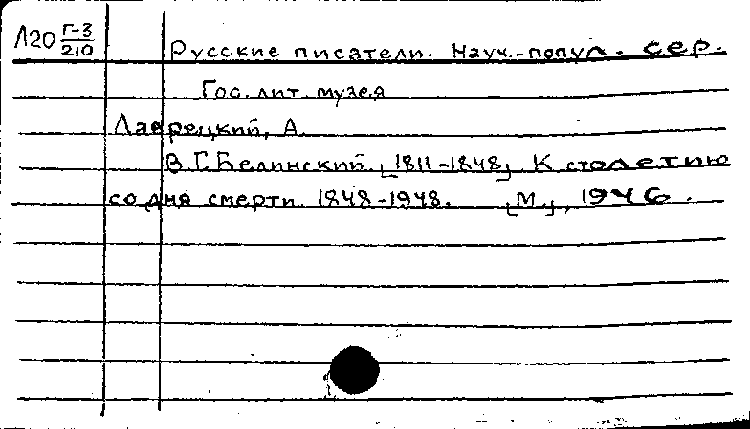 Л20 Г-3/210
Русские писатели. Науч.-попул. сер.
Гос. лит. музея
Лаврецкий, А.
В.Г. Белинский. [1811-1848] К столетию
со дня смерти. 1848-1948. [М.], 1946.